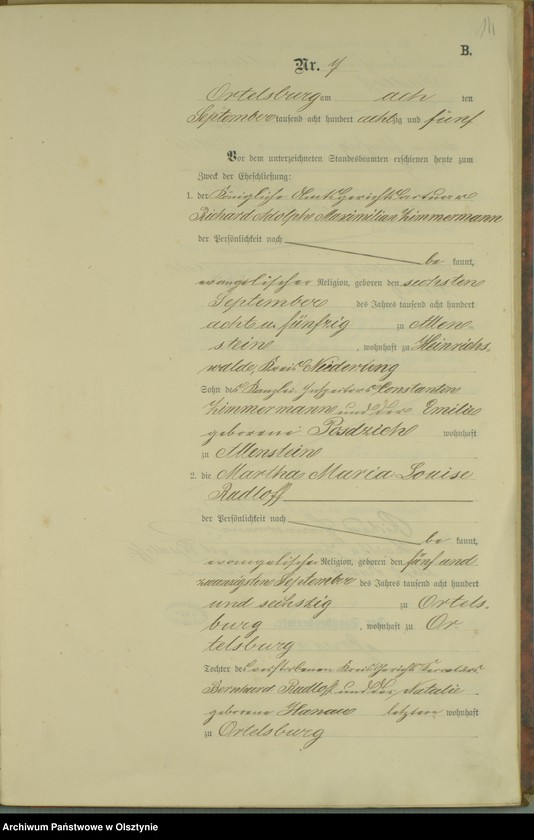 B.
Nr. 7
Ortelsburg am acht ten
September tausend acht hundert achtzig und fünf
Vor dem unterzeichneten Standesbeamten erschienen heute zum
Zweck der Eheschließung:
1. der Königliche Amtsgerichts Actuar
Richard Adolph Maximilian Zimmermann
der Persönlichkeit nach
be kannt,
evangelischer Religion, geboren den sechsten
September des Jahres tausend acht hundert
acht u. fünfzig zu Allen-
stein , wohnhaft zu Heinrichs-
walde, Kreis Niederung
Sohn des Kanzlei Inspectors Constantin
Zimmermann und der Emilie
geborene wohnhaft
zu Allenstein
2. die Martha Maria Louise
Radloff
der Persönlichkeit nach
be kannt,
evangelischer Religion, geboren den fünf und
zwanzigsten September des Jahres tausend acht hundert
und sechszig zu Ortels-
burg , wohnhaft zu Or-
telsburg
Tochter des verstorbenen Kreisgerichts
Bernhard Radloff und der Natalie
geborene Hanau letztere wohnhaft
zu Ortelsburg
Archiwum Państwowe w Olsztynie